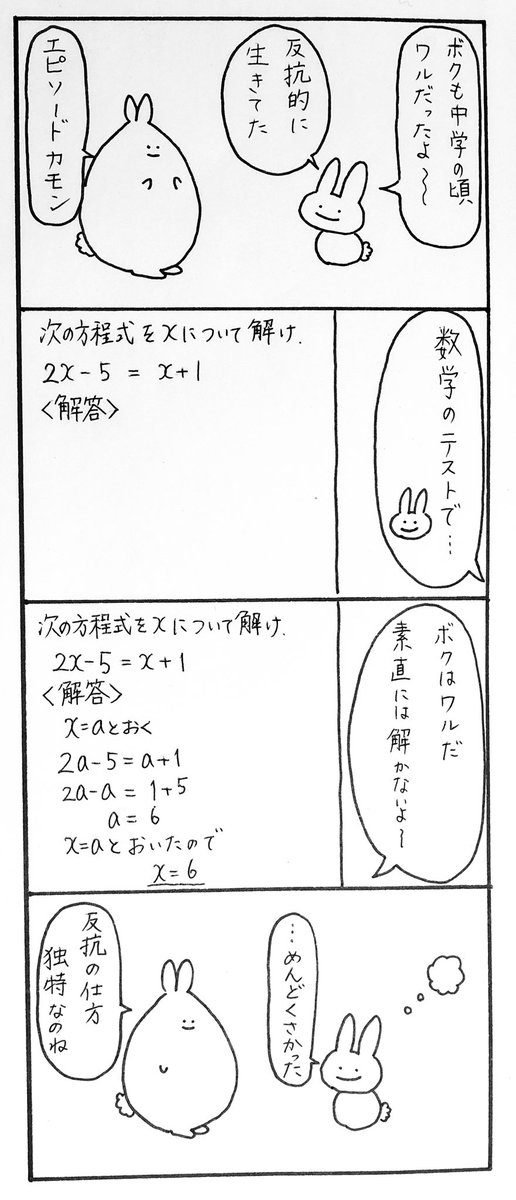 ボクも中学の頃
ワルだったよ〜〜
反抗的に
生きてた
エピソードカモン
数学のテストで…
次の方程式をxについて解け.
2x-5 = x+1
<解答>
ボクはワルだ
素直には解かないよ〜
次の方程式をxについて解け.
2x-5=x+1
<解答>
x=aとおく
2a-5=a+1
2a-a=1+5
a=6
x=aとおいたので
x=6
…めんどくさかった
反抗の仕方
独特なのね